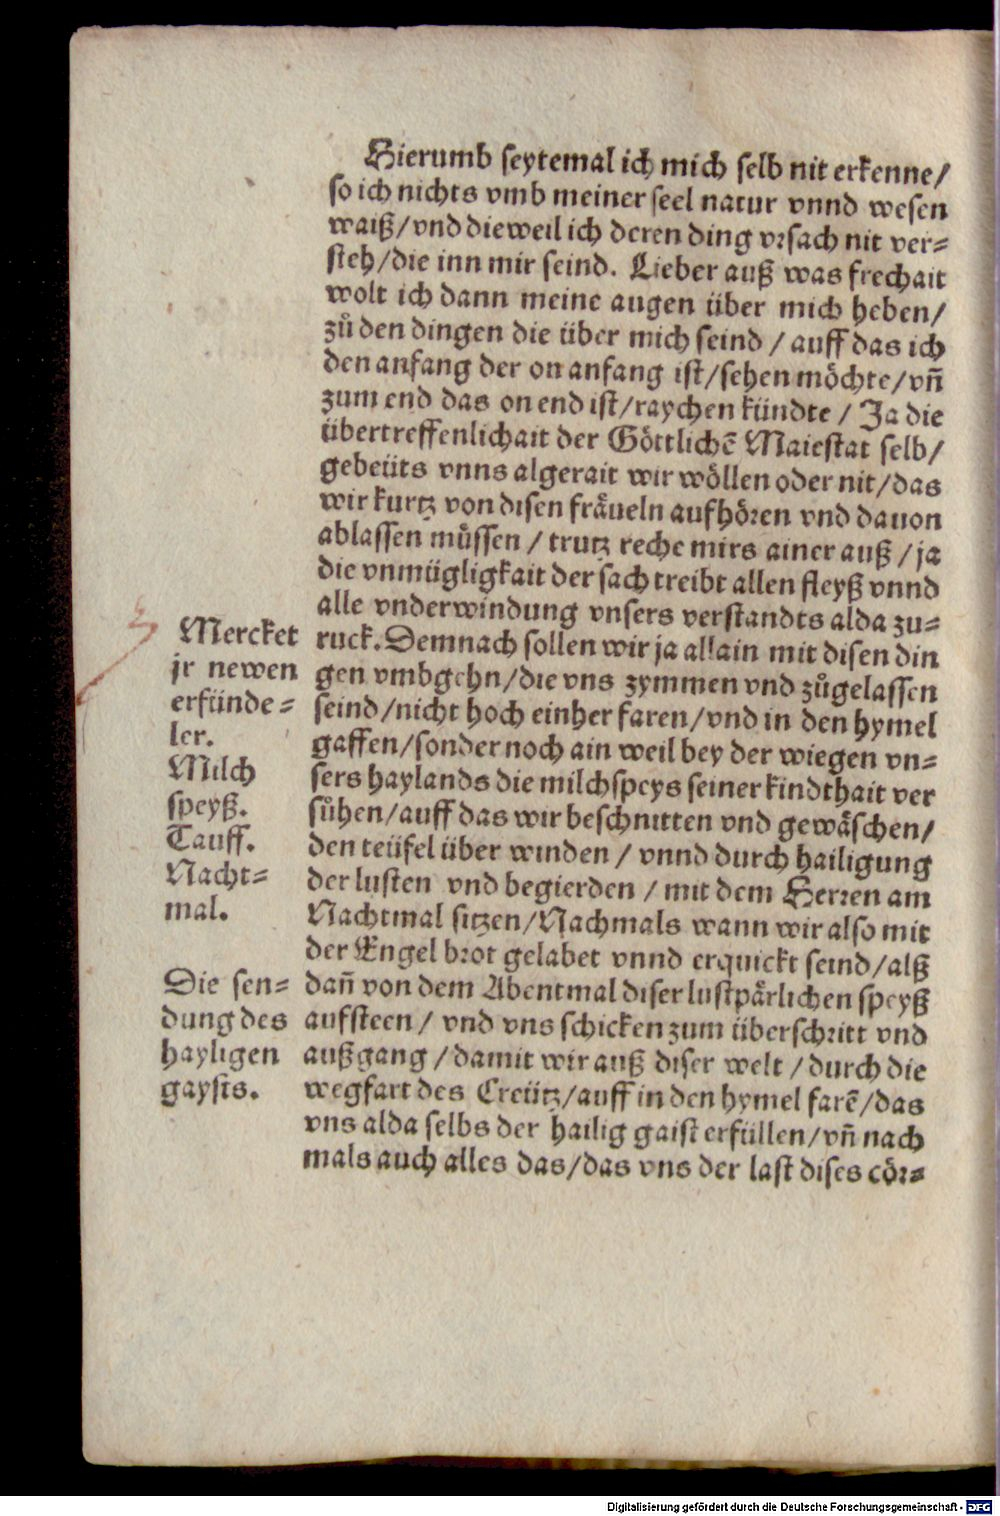 Hierumb seytemal ich mich selb nit erkenne/
so ich nichts vmb meiner seel natur vnnd wesen
waiß/vnd dieweil ich deren ding vrsach nit ver=
steh/die inn mir seind. Lieber auß was frechait
wolt ich dann meine augen über mich heben/
zů den dingen die über mich seind / auff das ich
den anfang der on anfang ist/sehen möchte/vñ
zum end das on end ist/raychen kündte / Ja die
übertreffenlichait der Göttlichē Maiestat selb/
gebeüts vnns algerait wir wöllen oder nit/das
wir kurtz von disen fräueln aufhören vnd dauon
ablassen müssen / trutz reche mirs ainer auß / ja
die vnmügligkait der sach treibt allen fleyß vnnd
alle vnderwindung vnsers verstandts alda zu=
ruck. Demnach sollen wir ja allain mit disen din
gen vmbgehn/die vns zymmen vnd zůgelassen
seind/nicht hoch einher faren/vnd in den hymel
gaffen/sonder noch ain weil bey der wiegen vn=
sers haylands die milchspeys seiner kindthait ver
sůhen/auff das wir beschnitten vnd gewäschen/
den teüfel über winden / vnnd durch hailigung
der lusten vnd begierden / mit dem Herren am
Nachtmal sitzen/Nachmals wann wir also mit
der Engel brot gelabet vnnd erquickt seind/alß
dañ von dem Abentmal diser lustpärlichen speyß
aufsteen / vnd vns schicken zum überschritt vnd
außgang / damit wir auß diser welt / durch die
wegfart des Creütz/auff in den hymel farē/das
vns alda selbs der hailig gaist erfüllen/vñ nach
mals auch alles das/das vns der last dises cör=
Mercket
jr newen
erfünde=
ler.
Milch
speyß.
Tauff.
Nacht=
mal.
Die sen=
dung des
hayligen
gaysts.
Digitalisierung gefördert durch die Deutsche Forschungsgemeinschaft - DFG